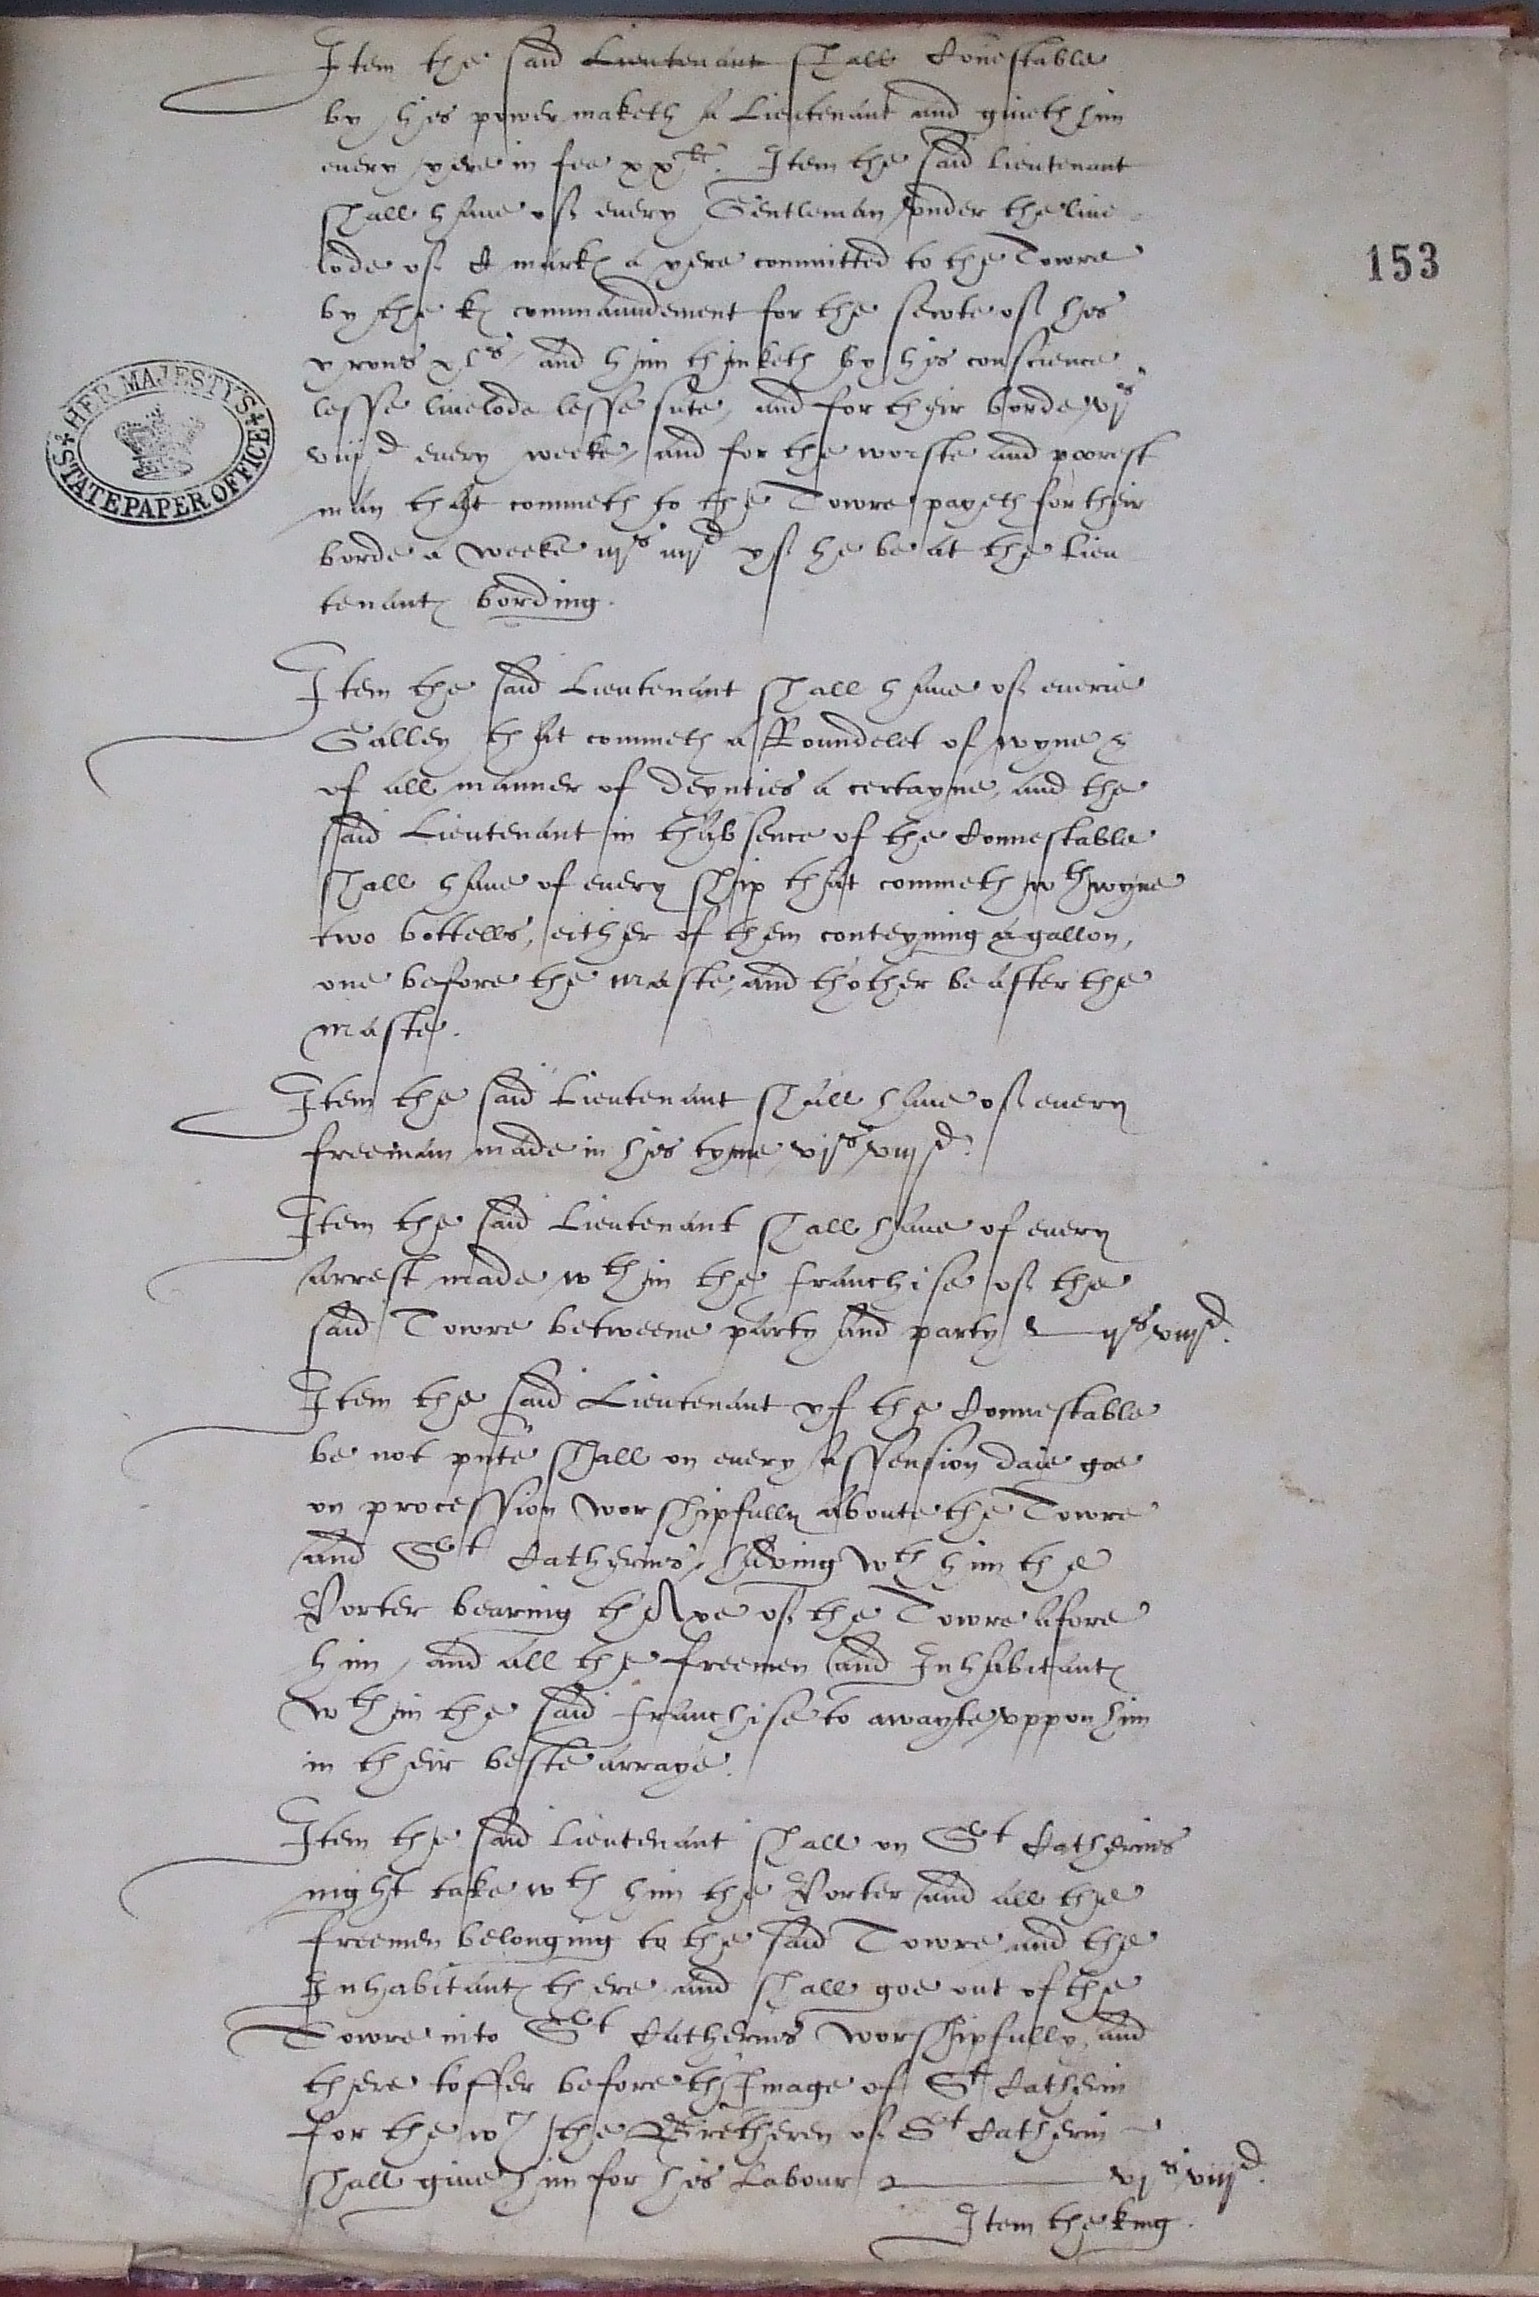 Item the said Lieutenant shall Conestable
by his power maketh A Lieutenant and giueth him
euery yere in fee xxli. Item the said Lieutenant
shall haue of euery Gentleman vnder the liue-
lode of C markes a yere committed to the Towre
by the k commaundement for the sewte of his
yrons xls, and him thinketh by his conscience
lesse liuelode lesse sute, and for their borde vjs
viijd euery weeke, and for the worste and poorest
man that commeth to the Towre payeth for their
borde a weeke iijs iiijd yf he be at the Lieu
tenantes bording.
Item the said Lieutenant shall haue of euerie
Galley that commeth a Roundelet of wyne &
of all manner of deynties a certayne, and the
said Lieutenant in thabsence of the Connestable
shall haue of euery ship that commeth wth wyne
two bottells, either of them conteyning a gallon,
one before the maste, and thother be after the
maste.
Item the said Lieutenant shall haue of euery
freeman made in his tyme vjs viijd.
Item the said Lieutenant shall haue of euery
arrest made wthin the franchise of the
said Towre betweene party and party ijs viijd.
Item the said Lieutenant yf the Connestable
be not pnte shall on euery Assension daie goe
on procession worshipfully aboute the Towre
and St Catherins, having wth him the
Porter bearing thAxe of the Towre afore
him, and all the freemen and Inhabitantes
wthin the said franchise to awayte vppon him
in their beste arraye.
Item the said Lieutenant shall on St Catherins
night take wth him the Porter and all the
freemen belonging to the said Towre and the
Inhabitantes there and shall goe out of the
Towre into St Catherins worshipfully, and
there toffer before thImage of St Catherin
for the wch the Bretheren of St Catherin
shall giue him for his Labour vjs viijd.
Item the king.
153
HER MAJESTY'S STATE PAPER OFFICE